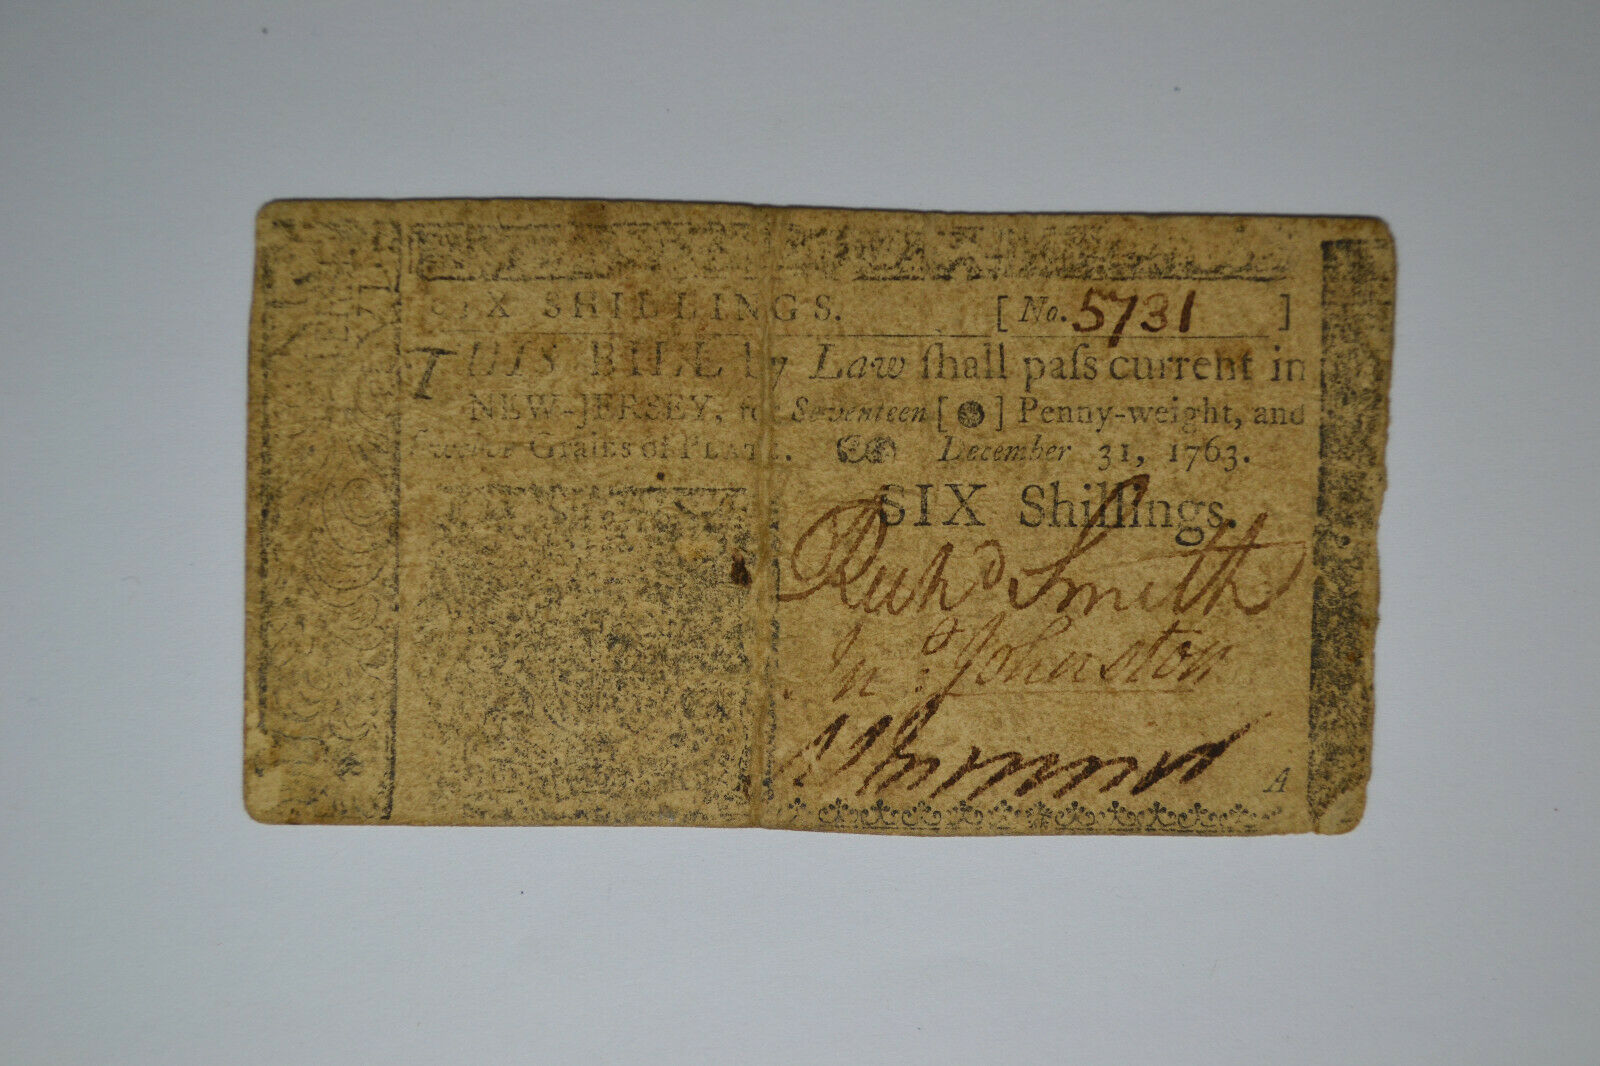 SIX SHILLINGS. [ No. 5731 ]
THIS BILL by Law ſhall paſs current in
NEW-JERSEY, for Seventeen [ ] Penny-weight, and
Grains of PLATE. December 31, 1763.
SIX Shillings.
Richd Smith
Jno. Johnston
A